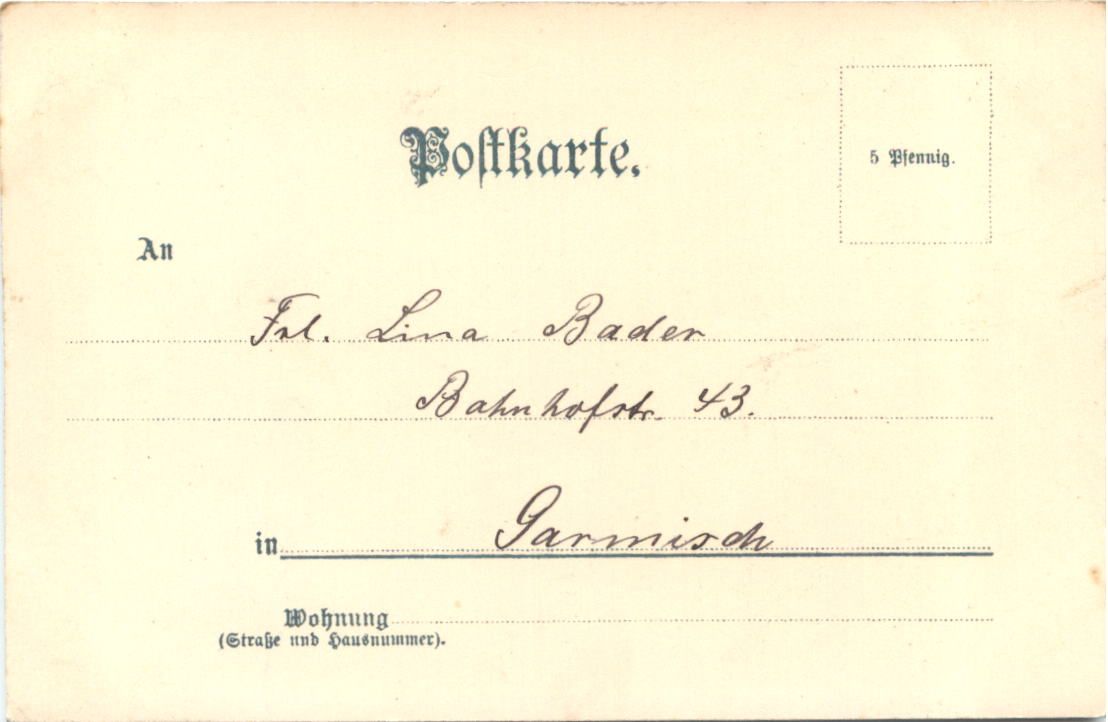 Postkarte.
5 Pfennig.
An
Frl. Lina Bader
Bahnhofstr. 43.
in Garmisch
Wohnung
(Straße und Hausnummer).